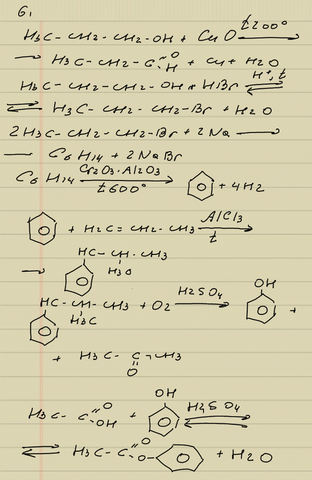 6.
H3C - CH2 - CH2 - OH + CuO t200°
→ H3C - CH2 - C O H + Cu + H2O
H3C - CH2 - CH2 - OH + HBr H+, t ⇌
⇌ H3C - CH2 - CH2 - Br + H2O
2H3C - CH2 - CH2 - Br + 2Na —
— C6H14 + 2NaBr
C6H14 Cr2O3·Al2O3 t600° → + 4H2
+ H2C = CH2 - CH3 AlCl3 t →
→ HC - CH - CH3 H3C
HC - CH - CH3 H3C + O2 H2SO4 → OH +
+ H3C - C - CH3 O
H3C - C O OH + OH H2SO4 ⇌
⇌ H3C - C O O - + H2O